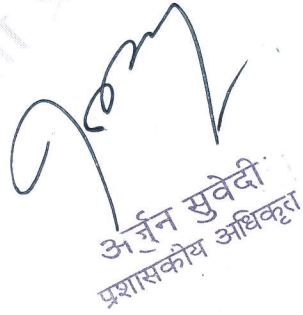 अर्जुन सुवेदी
प्रशासकीय अधिकृत